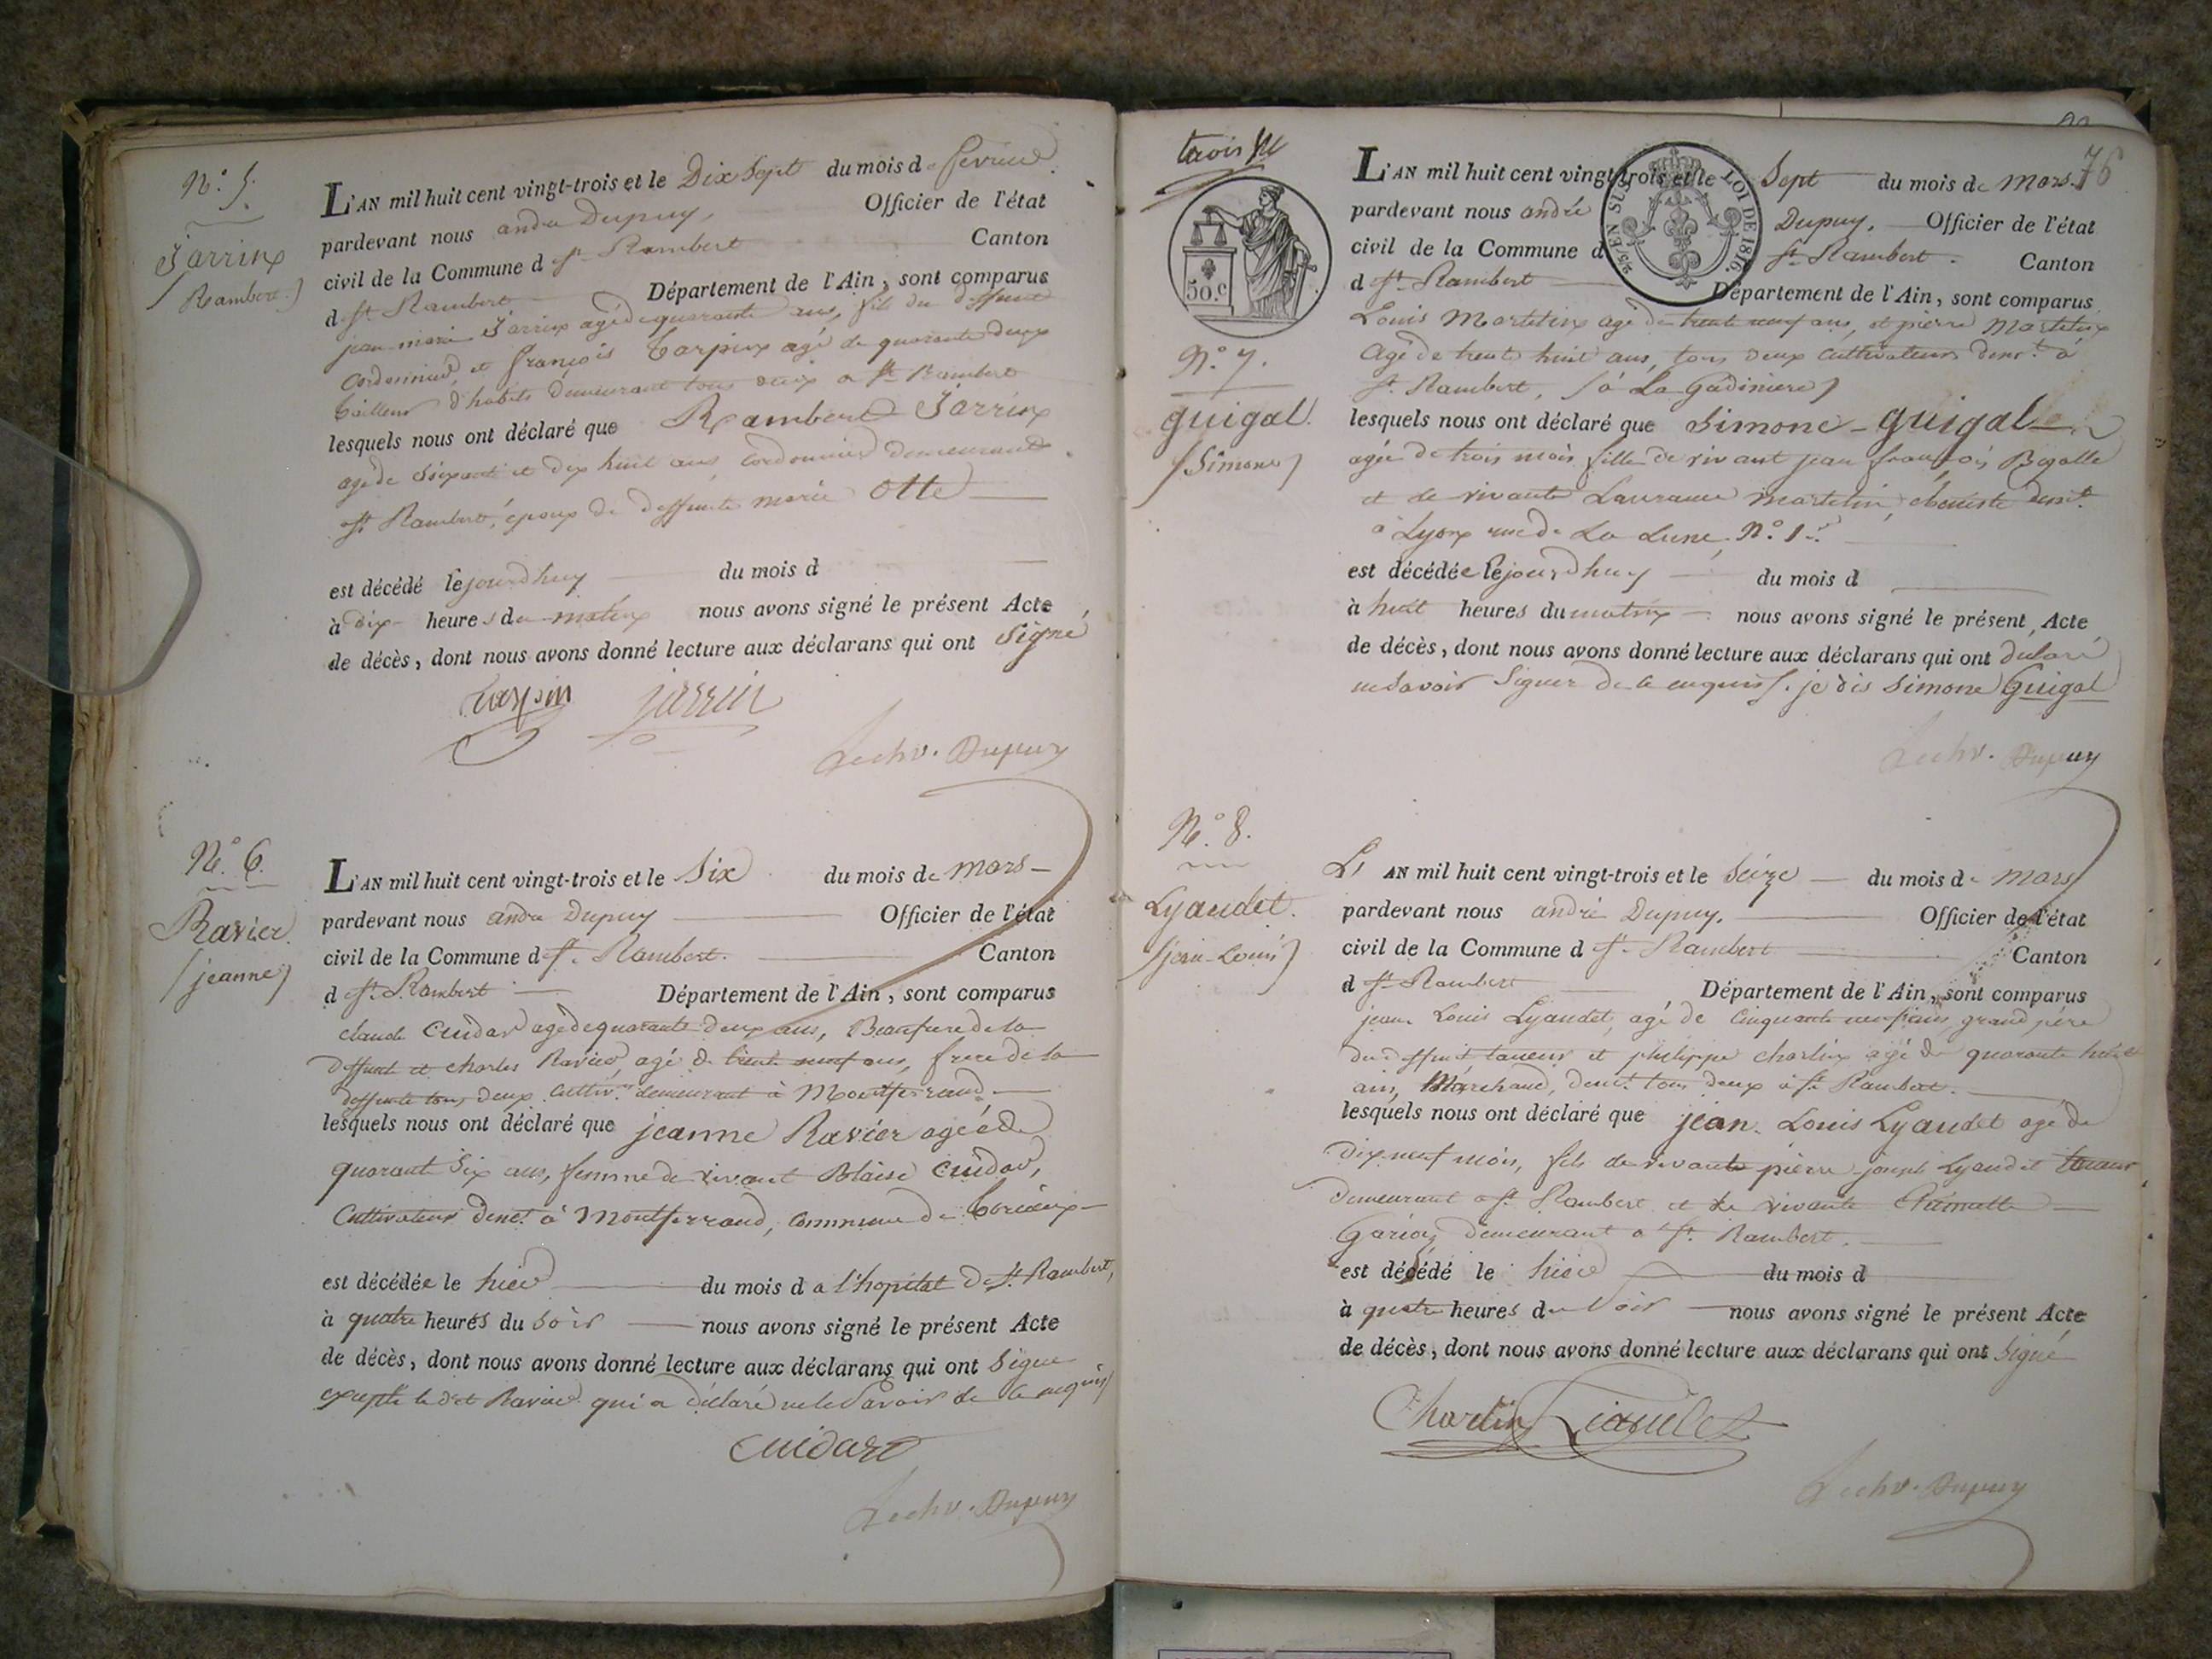 N.° 5.
Jarrin
(Rambert)
L'AN mil huit cent vingt-trois et le Dix Sept du mois de fevrier
pardevant nous andré Dupuy, Officier de l'état
civil de la Commune d St Rambert Canton
d St Rambert Département de l'Ain, sont comparus
jean marie Jarrin agé de quarante ans, fils du deffunt
Cordonnier, et françois Tarpin agé de quarante deux
tailleur d'habits demeurant tous deux a St Rambert
lesquels nous ont déclaré que Rambert Jarrin
agé de soixante et dix huit ans Cordonnier demeurant
St Rambert, époux de deffunte marie Otte
est décédé le jourdhuy du mois d
à dix heures du matin nous avons signé le présent Acte
de décès, dont nous avons donné lecture aux déclarans qui ont signé
tarpin jarrin
Dupuy
N.° 6.
Ravier.
(jeanne)
L'AN mil huit cent vingt-trois et le Six du mois de mars
pardevant nous andré Dupuy Officier de l'état
civil de la Commune d St Rambert. Canton
d St Rambert Département de l'Ain, sont comparus
claude Cuidar agé de quarante deux ans, Beaufrere de la
deffunte et charles Ravier, agé de trente neuf ans, frere de la
deffunte tous deux cultivrs demeurant à Montferrand
lesquels nous ont déclaré que jeanne Ravier agée de
quarante Six ans, femme de vivant Blaise Cuidar,
Cultivateur demt à Montferrand, commune de Torcieux
est décédée le hier du mois d a l'hopital de St Rambert,
à quatre heures du soir nous avons signé le présent Acte
de décès, dont nous avons donné lecture aux déclarans qui ont signé
excepté ledit Ravier qui a déclaré ne le savoir de ce requis
cuidard
Dupuy
trois
76
50.c
EN SUS
LOI DE 1816.
N.° 7.
guigal.
(Simone)
L'AN mil huit cent vingt-trois et le Sept du mois de mars.
pardevant nous andré Dupuy, Officier de l'état
civil de la Commune d St Rambert. Canton
d St Rambert Département de l'Ain, sont comparus
Louis Martelin agé de trente neuf ans, et pierre Martelin
agé de trente huit ans, tous deux cultivateurs demt à
St Rambert, (à La Gadiniere)
lesquels nous ont déclaré que Simone guigal
agée de trois mois fille de vivant jean françois Bigalle
et de vivante Laurance martelin, ébeniste demt
à Lyon rue de La Lune, N.° 1.
est décédée le jourdhuy du mois d
à huit heures du matin nous avons signé le présent Acte
de décès, dont nous avons donné lecture aux déclarans qui ont declaré
ne savoir signer de ce enquis. je dis Simone Guigal
Dupuy
N.° 8.
Lyaudet.
(jean-Louis)
L'AN mil huit cent vingt-trois et le Seize du mois de mars
pardevant nous andré Dupuy. Officier de l'état
civil de la Commune d St Rambert Canton
d St Rambert Département de l'Ain, sont comparus
jean Louis Lyaudet, agé de Cinquante neuf ans, grand père
du deffunt, taneur et philippe charlin agé de quarante huit
ans, Marchand, demt tous deux à St Rambert.
lesquels nous ont déclaré que jean-Louis Lyaudet agé de
dix neuf mois, fils de vivante pierre joseph Lyaudet taneur
demeurant a St Rambert et de vivante
demeurant a St Rambert.
est décédé le hier du mois d
à quatre heures du soir nous avons signé le présent Acte
de décès, dont nous avons donné lecture aux déclarans qui ont signé
Charlin Liaudet
Dupuy